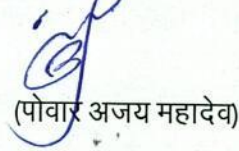 (पोवार अजय महादेव)